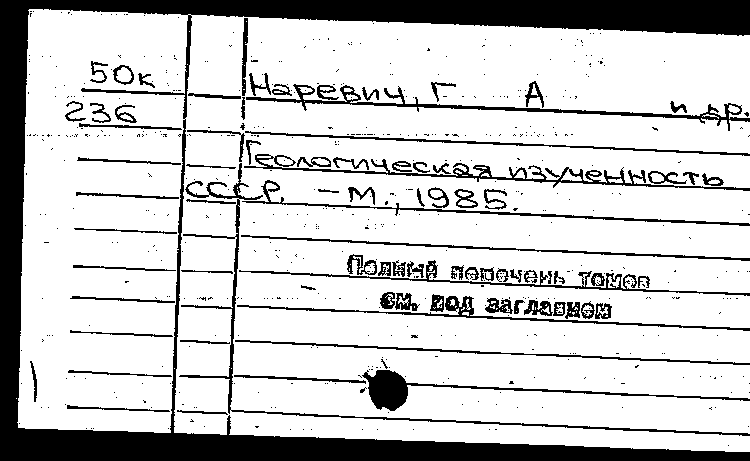 50к
236
Наревич, Г А и др.
Геологическая изученность
СССР. – М., 1985.
Полный перечень томов
см. под заглавием